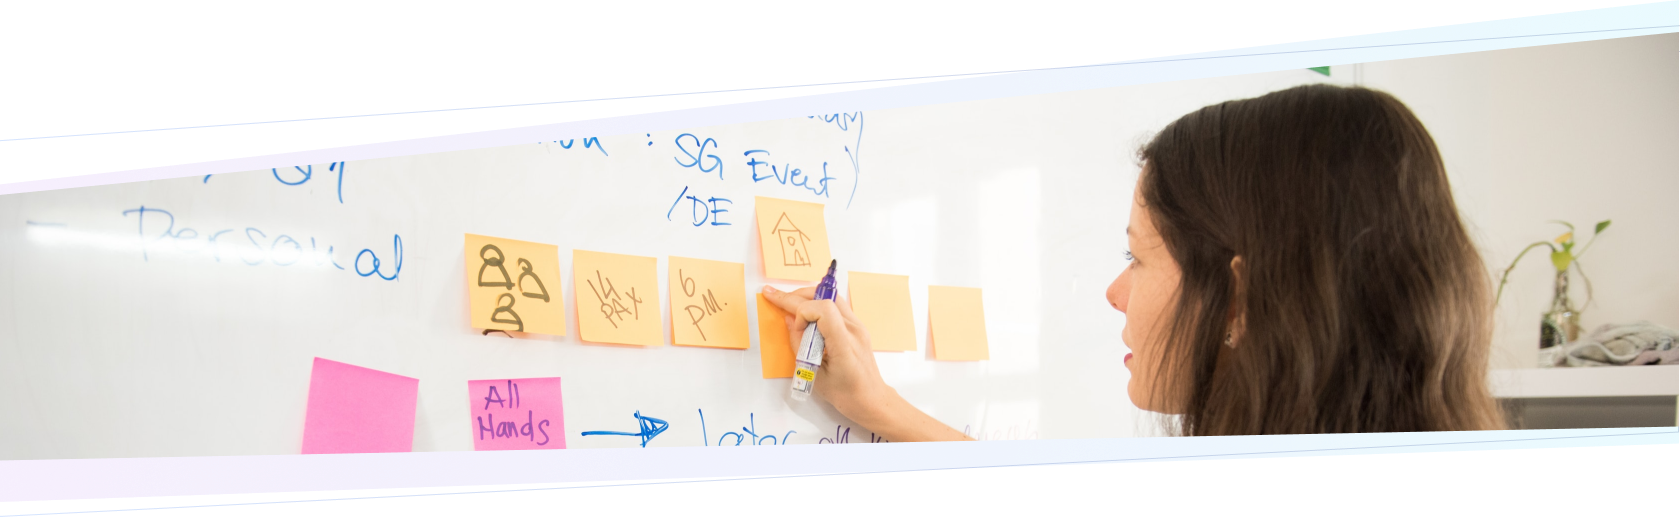 : SG Event)
/DE
Personal
14
PAX
6
PM.
All
Hands
later